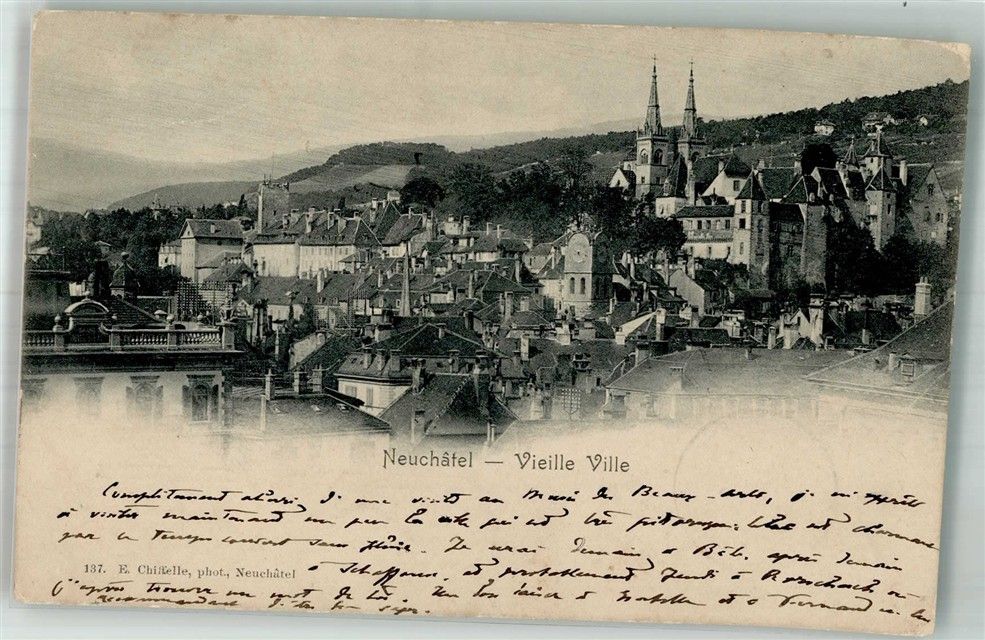 Neuchâtel — Vieille Ville
Complètement ahuri d'une visite au Musée des Beaux-arts, je m'apprête
à visiter maintenant un peu la ville qui est très pittoresque. C'est charmant
par ce temps couvert sans pluie. Je serai demain à Bâle, après demain
137. E. Chiffelle, phot., Neuchâtel
à Schaffhouse, et probablement Jeudi à Rorschach où
j'espère trouver un mot de toi. Un bon baiser à et à Fernand en
recommandant d'être bien sage.